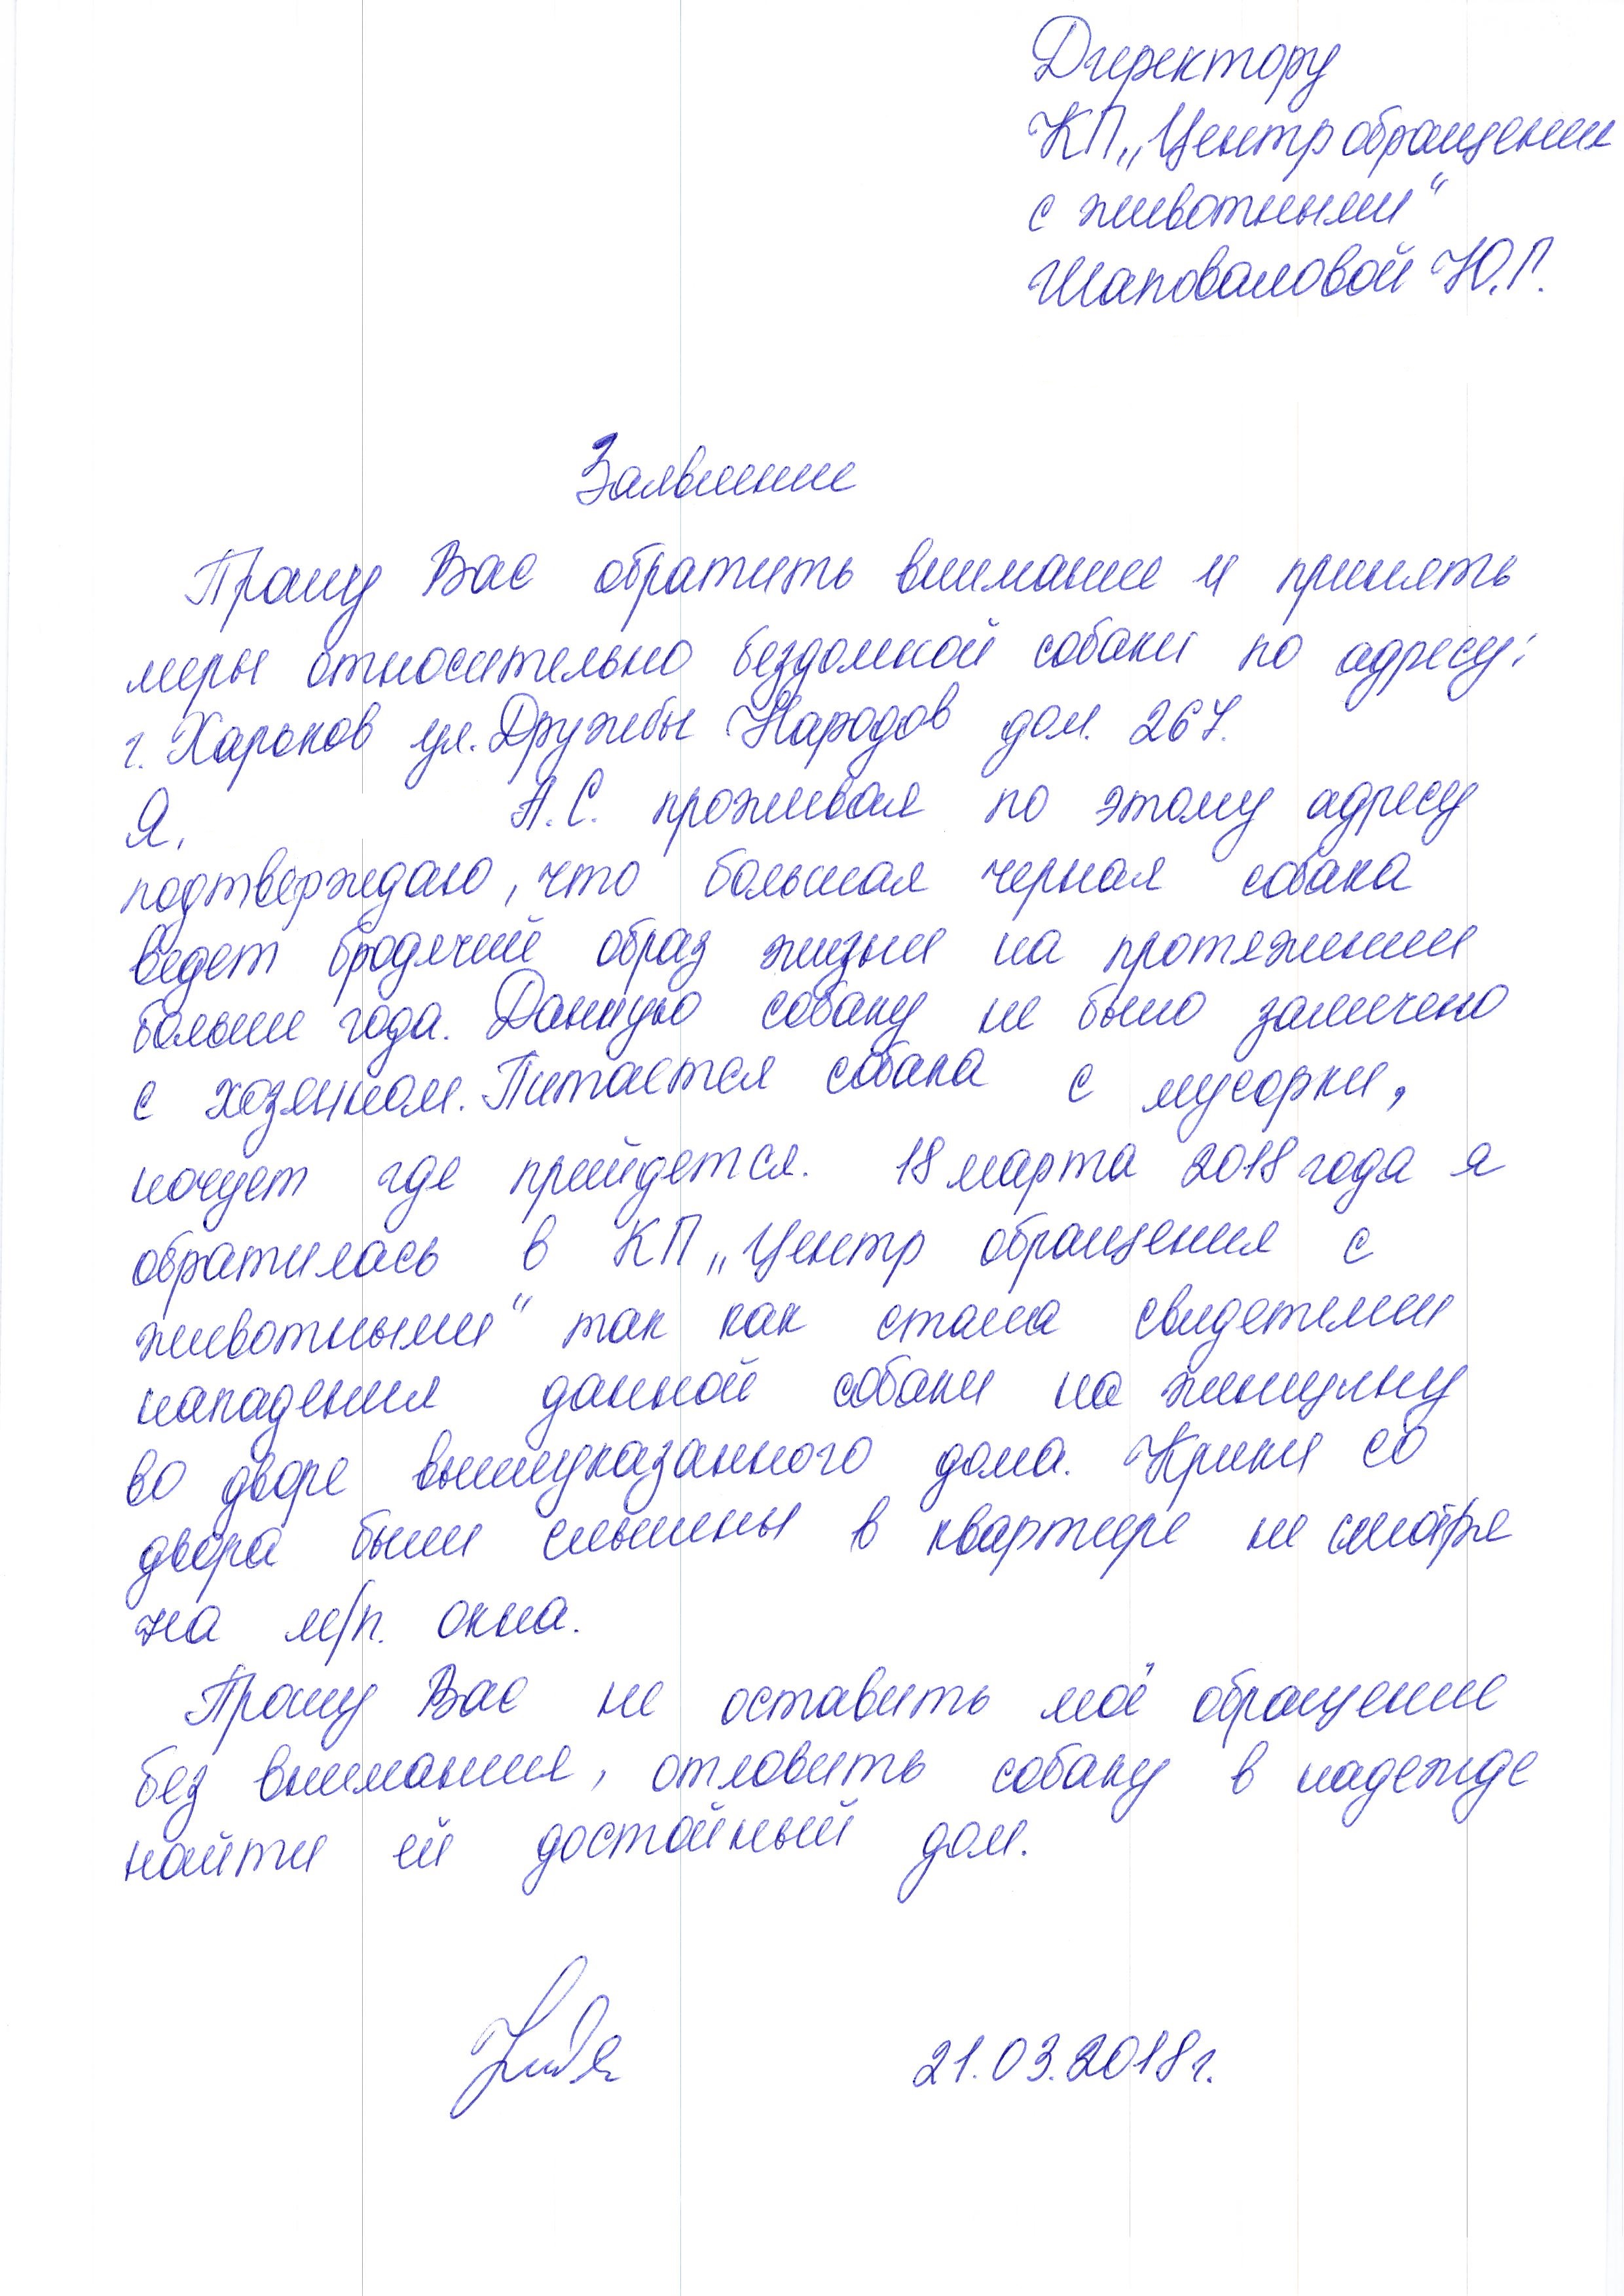 Директору
КП „Центр обращения
с животными“
Шаповаловой Ю.Г.
Заявление
Прошу Вас обратить внимание и принять
меры относительно бездомной собаки по адресу:
г. Харьков ул. Дружбы Народов дом. 267.
Я, А.С. проживая по этому адресу
подтверждаю, что большая черная собака
ведет бродячий образ жизни на протяжении
больше года. Данную собаку не было замечено
с хозяином. Питается собака с мусорки,
ночует где прийдется. 18 марта 2018 года я
обратилась в КП „Центр обращения с
животными“ так как стала свидетелем
нападения данной собаки на женщину
во дворе вышеуказанного дома. Крики со
двора были слышны в квартире не смотря
на м/п. окна.
Прошу Вас не оставить моё обращение
без внимания, отловить собаку в надежде
найти ей достойный дом.
21.03.2018г.